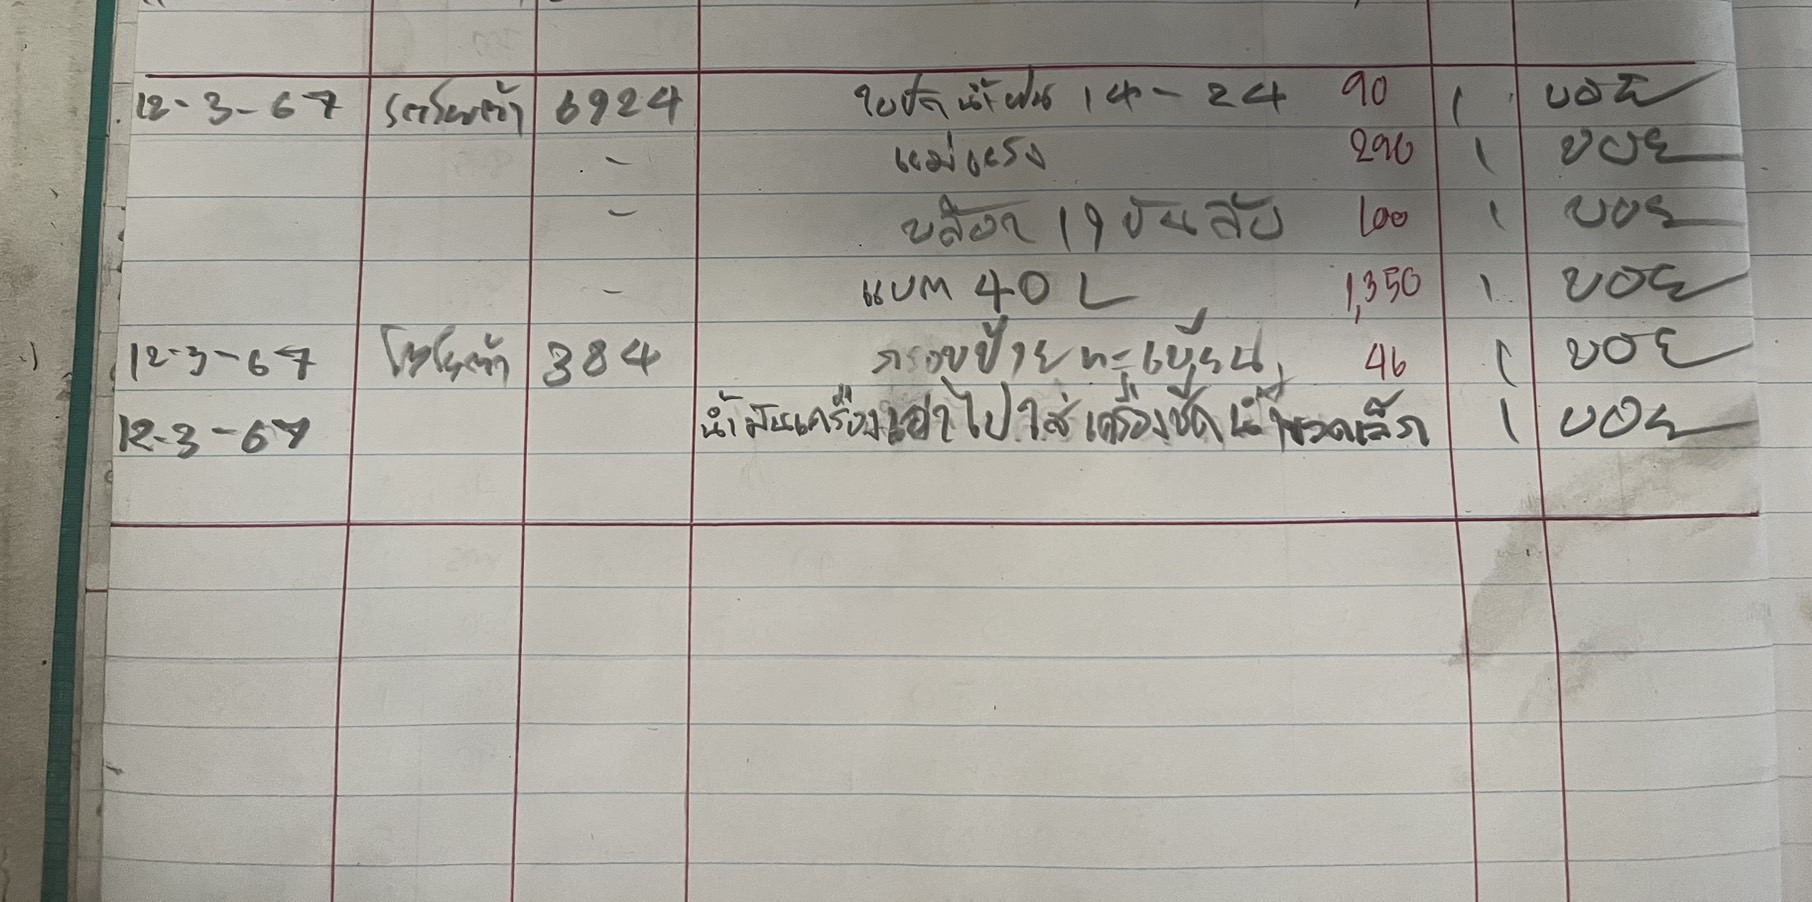 12-3-67 โตโยต้า 6924 ใบปัดน้ำฝน 14-24 90 1 บอย
- แม่แรง 290 1 บอย
- บล๊อก 19 ขันสับ 100 1 บอย
- แบต 40 L 1,350 1 บอย
12-3-67 โตโยต้า 384 กรอบป้ายทะเบียน 46 1 บอย
12-3-67 น้ำมันเครื่องเอาไปใส่เครื่องฉีดน้ำขวดเล็ก 1 บอย